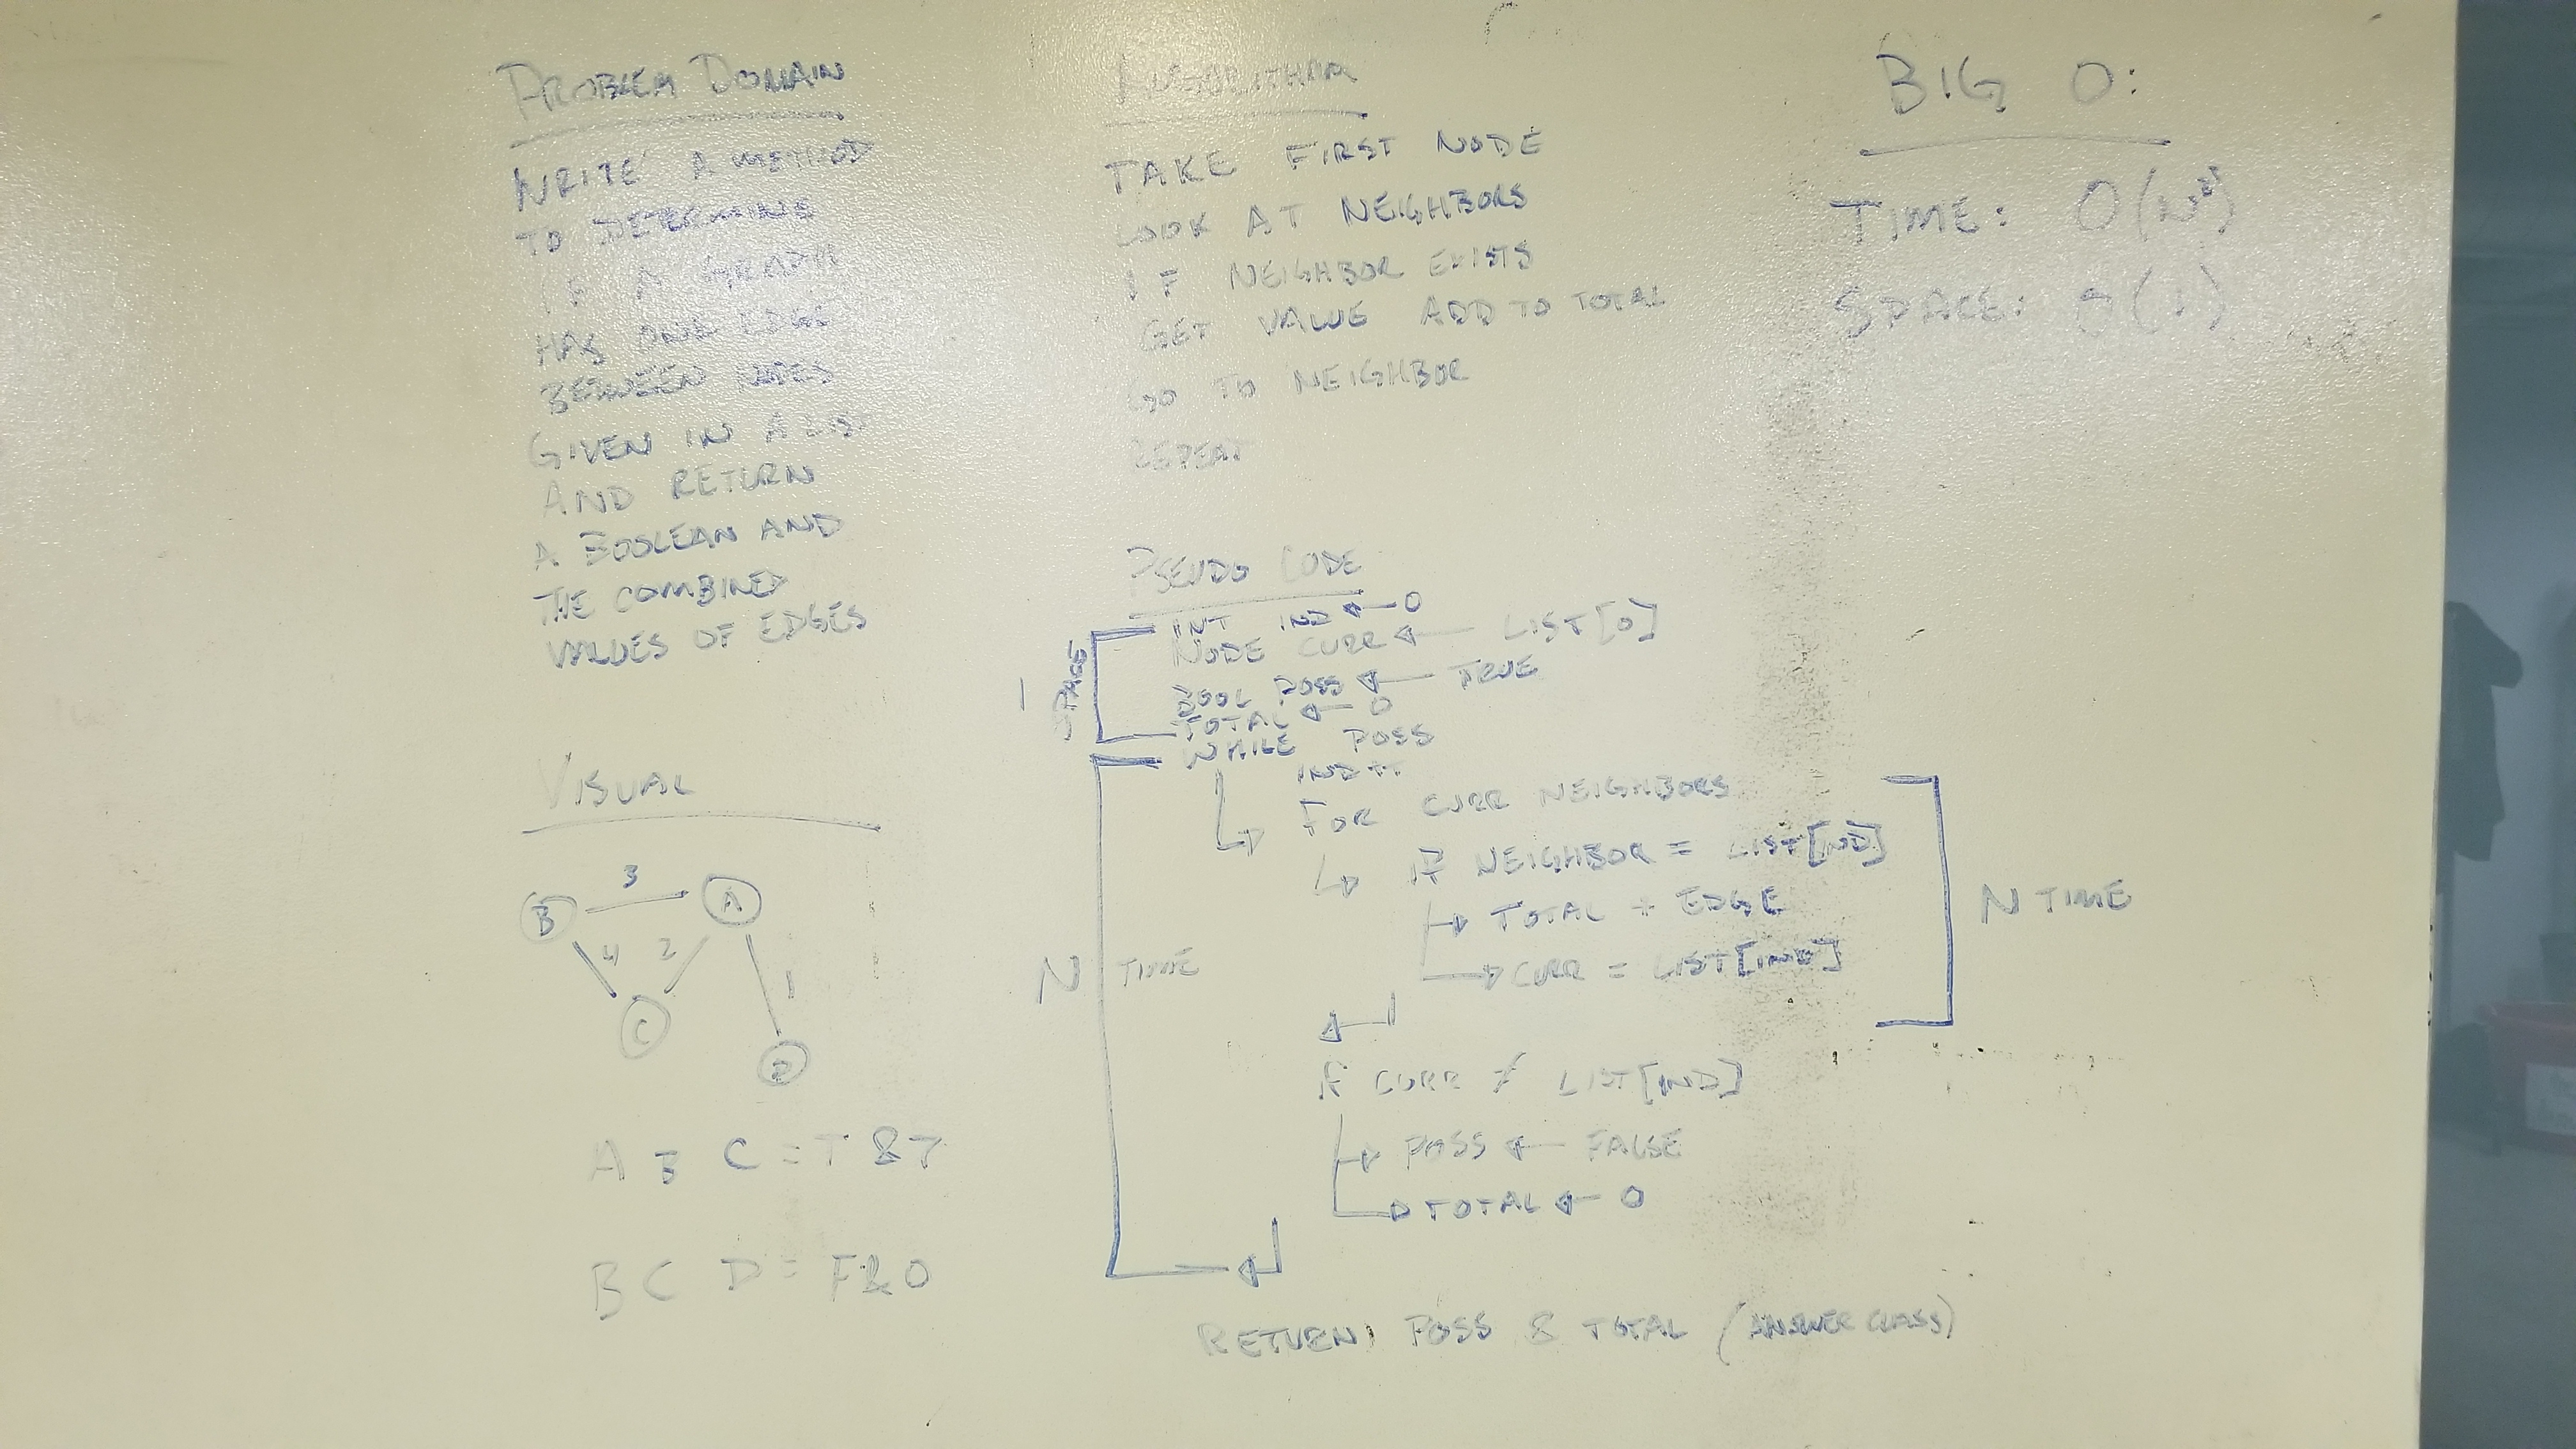 PROBLEM DOMAIN
WRITE A METHOD
TO DETERMINE
IF A GRAPH
HAS ONE EDGE
BETWEEN NODES
GIVEN IN A LIST
AND RETURN
A BOOLEAN AND
THE COMBINED
VALUES OF EDGES
VISUAL
B 3 A
4 2 1
C
D
A B C = T & 7
B C D = F & 0
ALGORITHM
TAKE FIRST NODE
LOOK AT NEIGHBORS
IF NEIGHBOR EXISTS
GET VALUE ADD TO TOTAL
GO TO NEIGHBOR
REPEAT
PSEUDO CODE
INT IND ← 0
NODE CURR ← LIST[0]
BOOL POSS ← TRUE
TOTAL ← 0
1 SPACE
WHILE POSS
IND++
FOR CURR NEIGHBORS
IF NEIGHBOR = LIST[IND]
TOTAL + EDGE
CURR = LIST[IND]
N TIME
N TIME
IF CURR ≠ LIST[IND]
POSS ← FALSE
TOTAL ← 0
RETURN POSS & TOTAL (ANSWER CLASS)
BIG O:
TIME: O(N²)
SPACE: O(1)